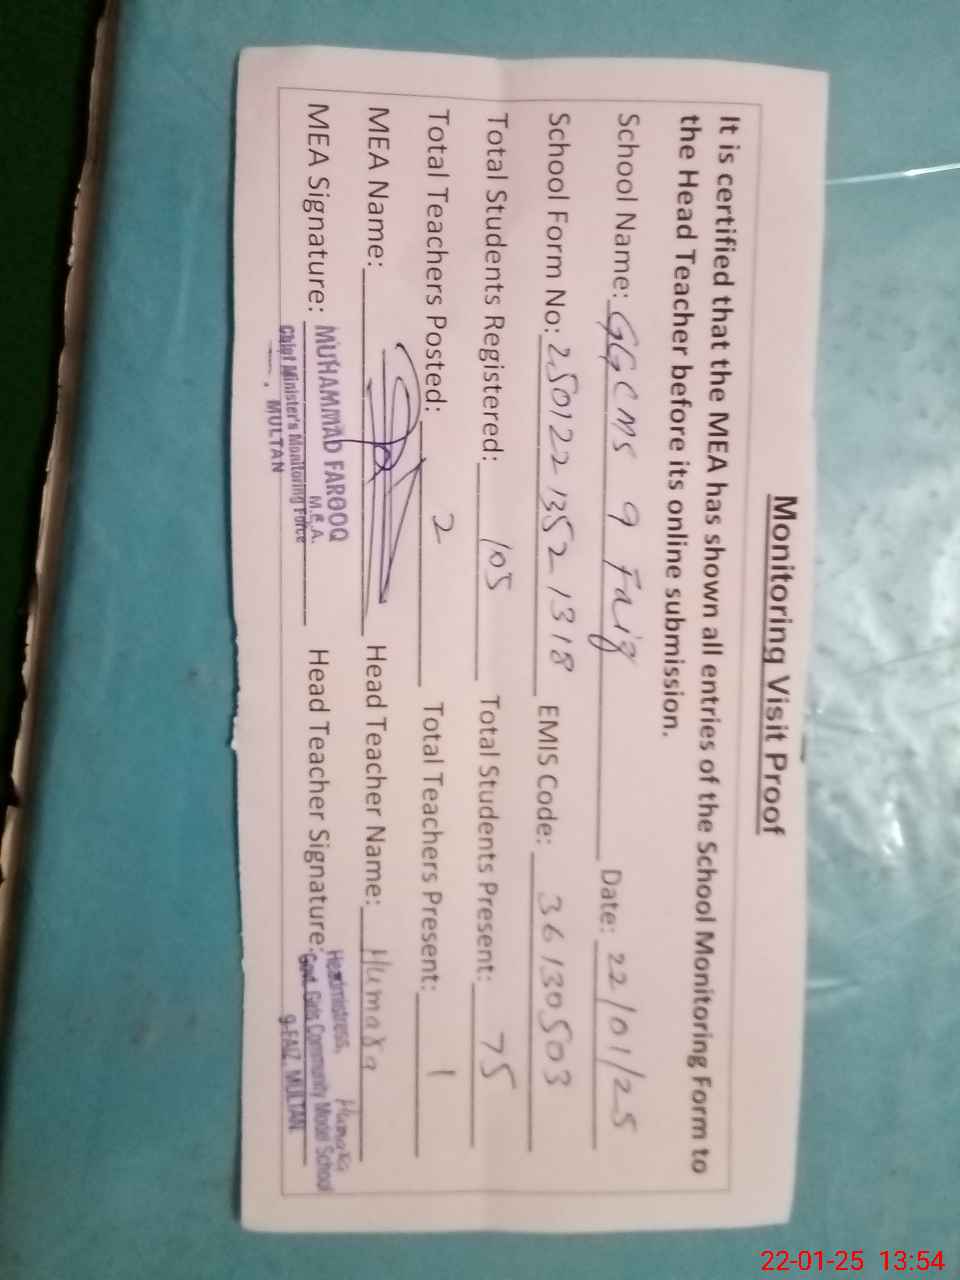 Monitoring Visit Proof
It is certified that the MEA has shown all entries of the School Monitoring Form to
the Head Teacher before its online submission.
School Name: GGCMS 9 Faiz Date: 22/01/25
School Form No: 250122 1352 1318 EMIS Code: 36130503
Total Students Registered: 105 Total Students Present: 75
Total Teachers Posted: 2 Total Teachers Present: 1
MEA Name: Head Teacher Name: Humaira
MEA Signature: MUHAMMAD FAROOQ Head Teacher Signature: Headmistress,
M.E.A. Govt. Girls Community Model School
Chief Minister's Monitoring Force 9-FAIZ, MULTAN.
MULTAN
22-01-25 13:54